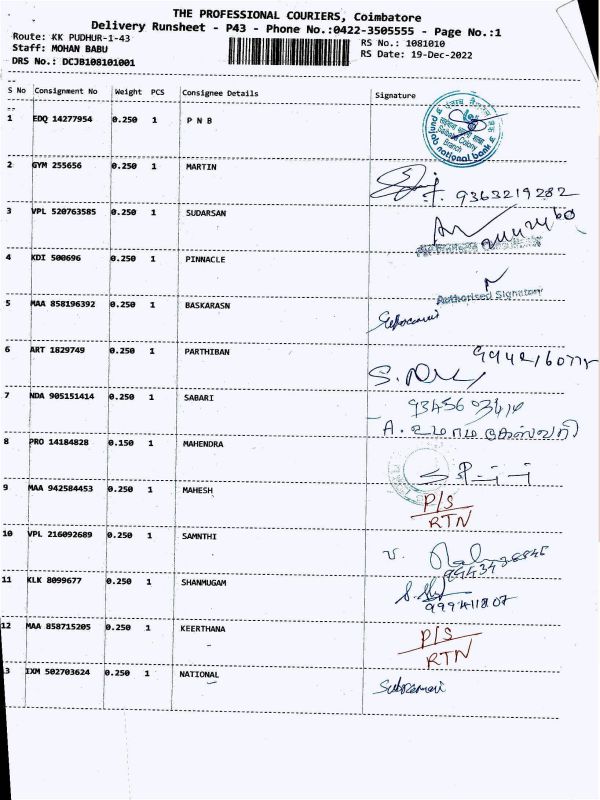 THE PROFESSIONAL COURIERS, Coimbatore
Delivery Runsheet - P43 - Phone No.:0422-3505555 - Page No.:1
Route: KK PUDHUR-1-43
Staff: MOHAN BABU
DRS No.: DCJB108101001
RS No.: 1081010
RS Date: 19-Dec-2022
S No Consignment No Weight PCS Consignee Details Signature
1 EDQ 14277954 0.250 1 P N B
punjab national bank
Saibaba Colony
Branch
2 GYM 255656 0.250 1 MARTIN
9363219282
3 VPL 520763585 0.250 1 SUDARSAN
4 KDI 500696 0.250 1 PINNACLE
Authorised Signatory
5 MAA 858196392 0.250 1 BASKARASN
6 ART 1829749 0.250 1 PARTHIBAN
7 NDA 905151414 0.250 1 SABARI
A. உமாமகேஸ்வரி
8 PRO 14184828 0.150 1 MAHENDRA
9 MAA 942584453 0.250 1 MAHESH
P/S
RTN
10 VPL 216092689 0.250 1 SAMNTHI
11 KLK 8099677 0.250 1 SHANMUGAM
12 MAA 858715205 0.250 1 KEERTHANA
P/S
RTN
13 IXM 502703624 0.250 1 NATIONAL